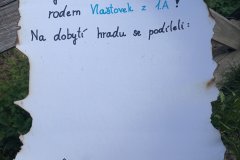 rodem Vlaštovek z 1.A !
Na dobytí hradu se podíleli: